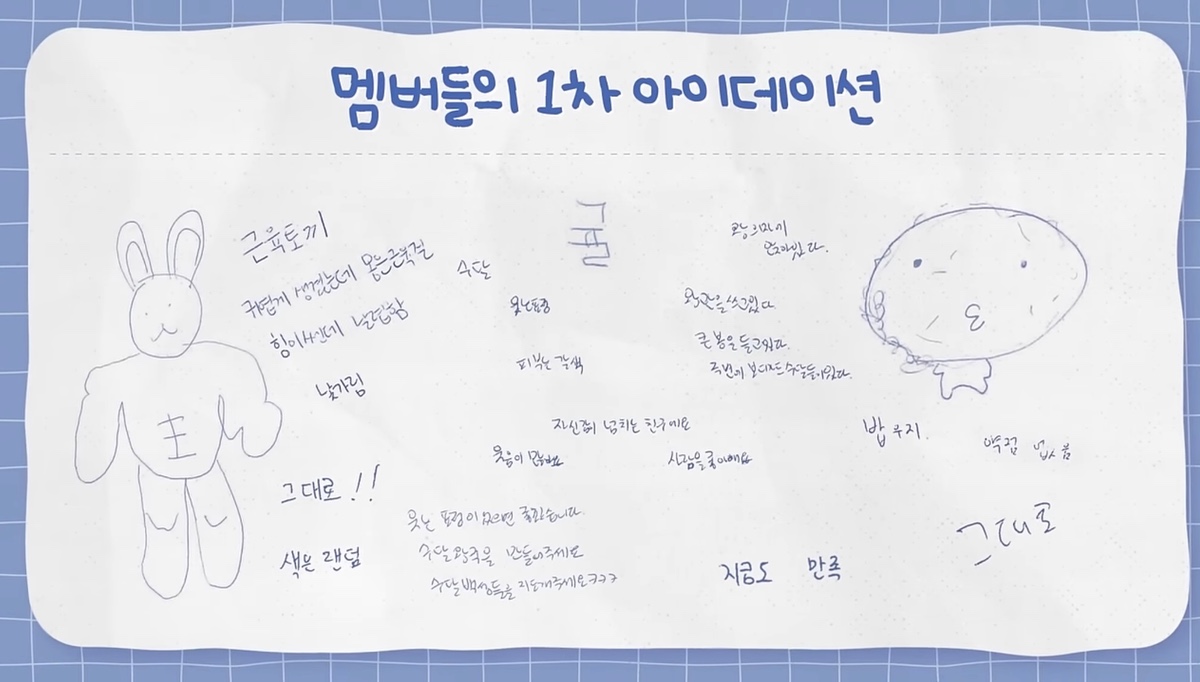 멤버들의 1차 아이데이션
근육토끼
귀엽게 생겼는데 몸은근육질
힘이쎈데 날렵함
낯가림
그대로!!
색은 랜덤
수달
웃는표정
피부는 갈색
왕의자에
앉아있다.
왕관을쓰고있다
큰 봉을 들고있다.
주변이 보디가드수달들이있다.
자신감이 넘치는 친구에요
웃음이 많아요
사람을좋아해요
웃는 표정이였으면 좋겠습니다.
수달왕국을 만들어주세요
수달백성들을 지도해주세요ㅋㅋㅋ
지금도 만족
밥우지.
약점 업씀
그대로